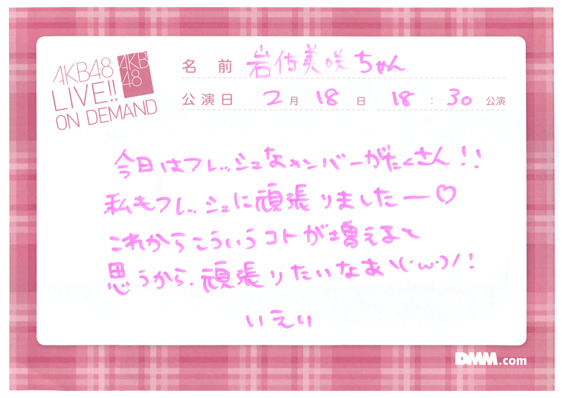 AKB48
LIVE!!
ON DEMAND
AKB
48
名前 岩佐美咲ちゃん
公演日 2月18日 18:30公演
今日はフレッシュなメンバーがたくさん!!
私もフレッシュに頑張りましたー♡
これからこういうコトが増えると
思うから、頑張りたいなあ\(・ω・)/!
いえり
DMM.com